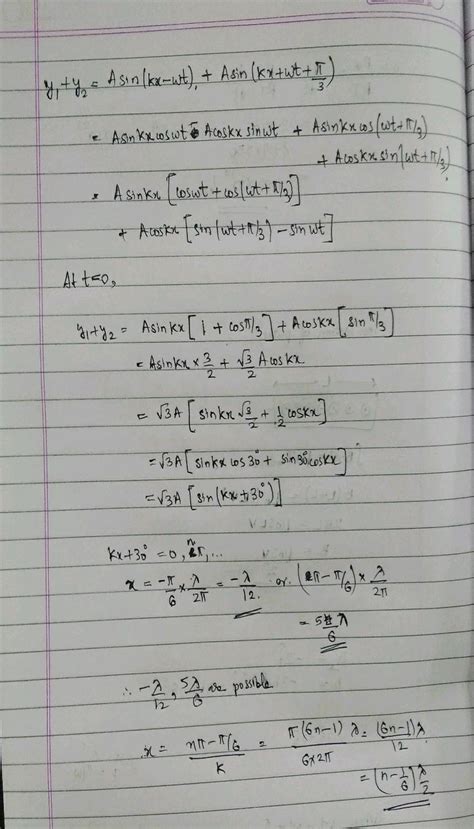 y₁+y₂ = Asin(kx-wt) + Asin(kx+wt+π/3)
= Asinkx coswt - Acoskx sinwt + Asinkx cos(wt+π/3)
+ Acoskx sin(wt+π/3)
= Asinkx [coswt + cos(wt+π/3)]
+ Acoskx [sin(wt+π/3) - sinwt]
At t=0,
y₁+y₂ = Asinkx [1 + cosπ/3] + Acoskx [sinπ/3]
= Asinkx × 3/2 + √3/2 Acoskx
= √3A [sinkx √3/2 + 1/2 coskx]
= √3A [sinkx cos30° + sin30° coskx]
= √3A [sin(kx+30°)]
kx+30° = 0, nπ, ...
x = -π/6 × λ/2π = -λ/12 or (π-π/6) × λ/2π
= 5λ/6
∴ -λ/12, 5λ/6 are possible
x = (nπ-π/6)/k = π(6n-1)λ/(6×2π) = (6n-1)λ/12
= (n-1/6)λ/2